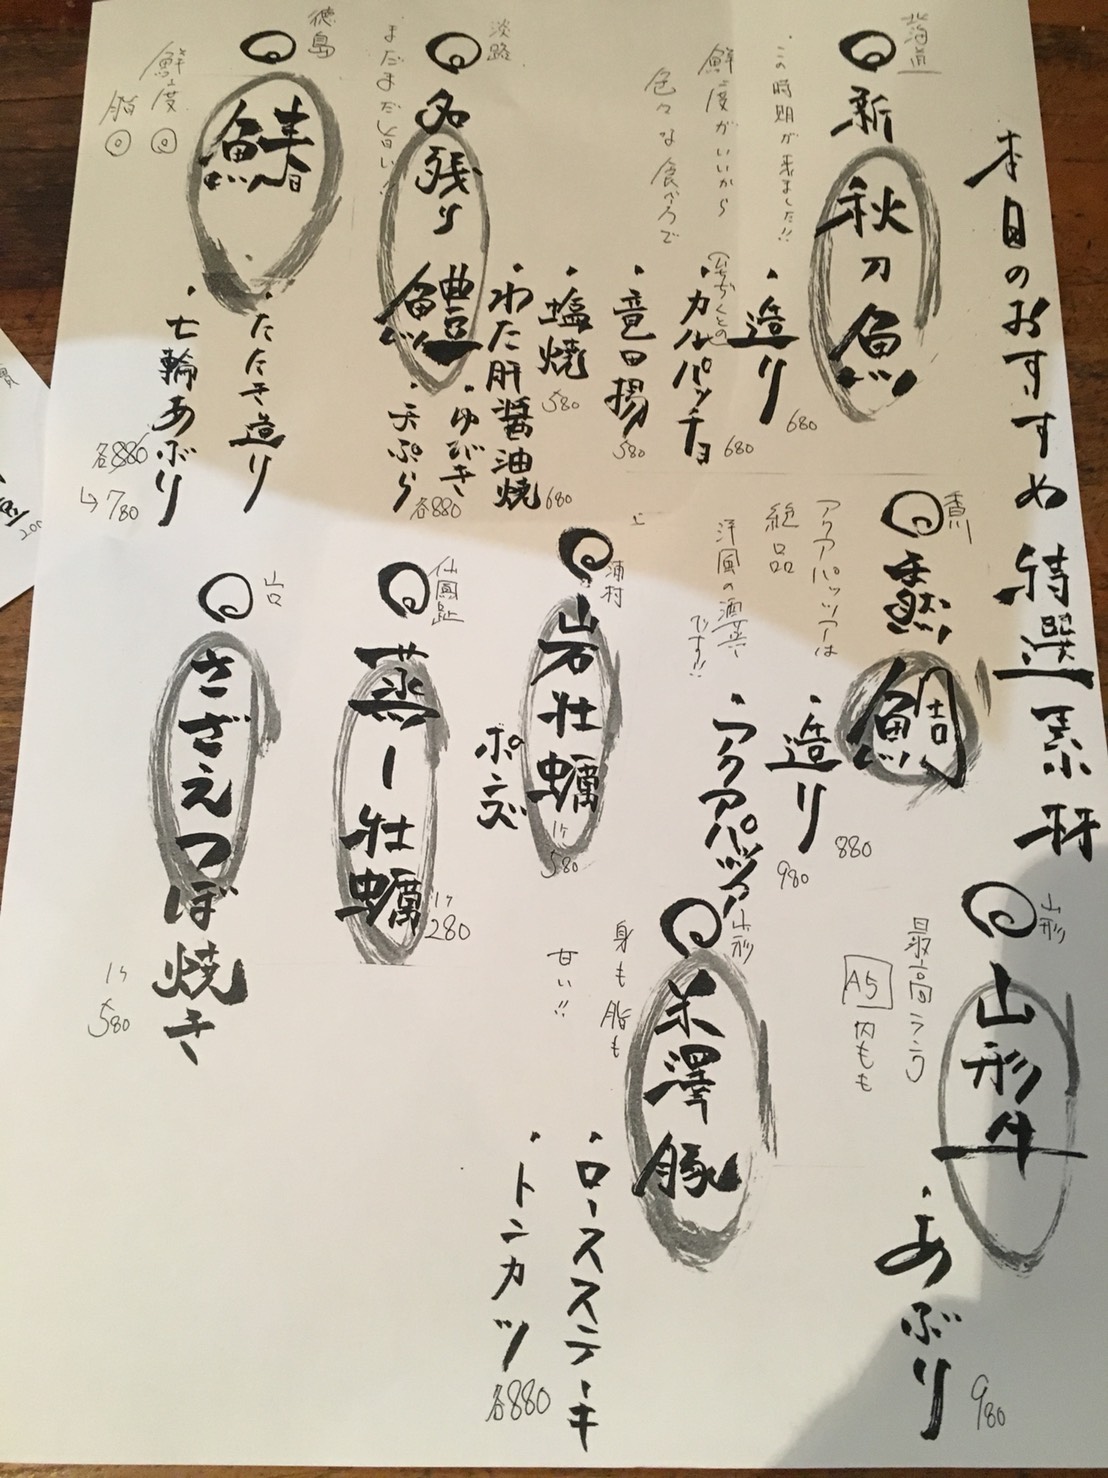 本日のおすすめ特選素材
北海道
新秋刀魚
この時期が来ました!!
鮮度がいいから
色々な食べ方で
・造り 680
・カルパッチョ 680
・竜田揚 580
・塩焼 580
・わた肝醤油焼 680
淡路
名残り鱧
まだまだ旨い!
・ゆびき
・天ぷら
各880
徳島
鰆
鮮度◎
脂◎
・たたき造り
・七輪あぶり
各880
↳780
香川
真鯛
アクアパッツアーは
絶品
洋風の酒蒸
です!!
・造り 880
・アクアパッツアー 980
浦村
岩牡蠣
1ケ
580
ポン酢
蒸し牡蠣
1ケ
280
山口
さざえつぼ焼き
1ケ
580
山形
山形牛
最高ランク
A5
内もも
・あぶり 980
山形
米澤豚
身も脂も
甘い!!
・ロースステーキ
・トンカツ
各880